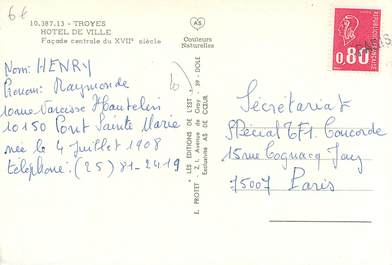 6€
10.387.13 - TROYES
HOTEL DE VILLE
Façade centrale du XVIIe siècle
AS
Couleurs
Naturelles
RÉPUBLIQUE FRANÇAISE
0,80
Nom: HENRY
Prenom: Raymonde
10 rue Narcisse Hautelin
10150 Pont Sainte Marie
née le 4 Juillet 1908
téléphone: (25) 81-2419
"LES EDITIONS DE L'EST"
E. PROTET - Z.I. Avenue de Gray - 39 - DOLE
Exclusivité AS DE CŒUR
Secrétariat
Spécial TF1. Concorde
15 rue Cognacq Jay
75007 Paris